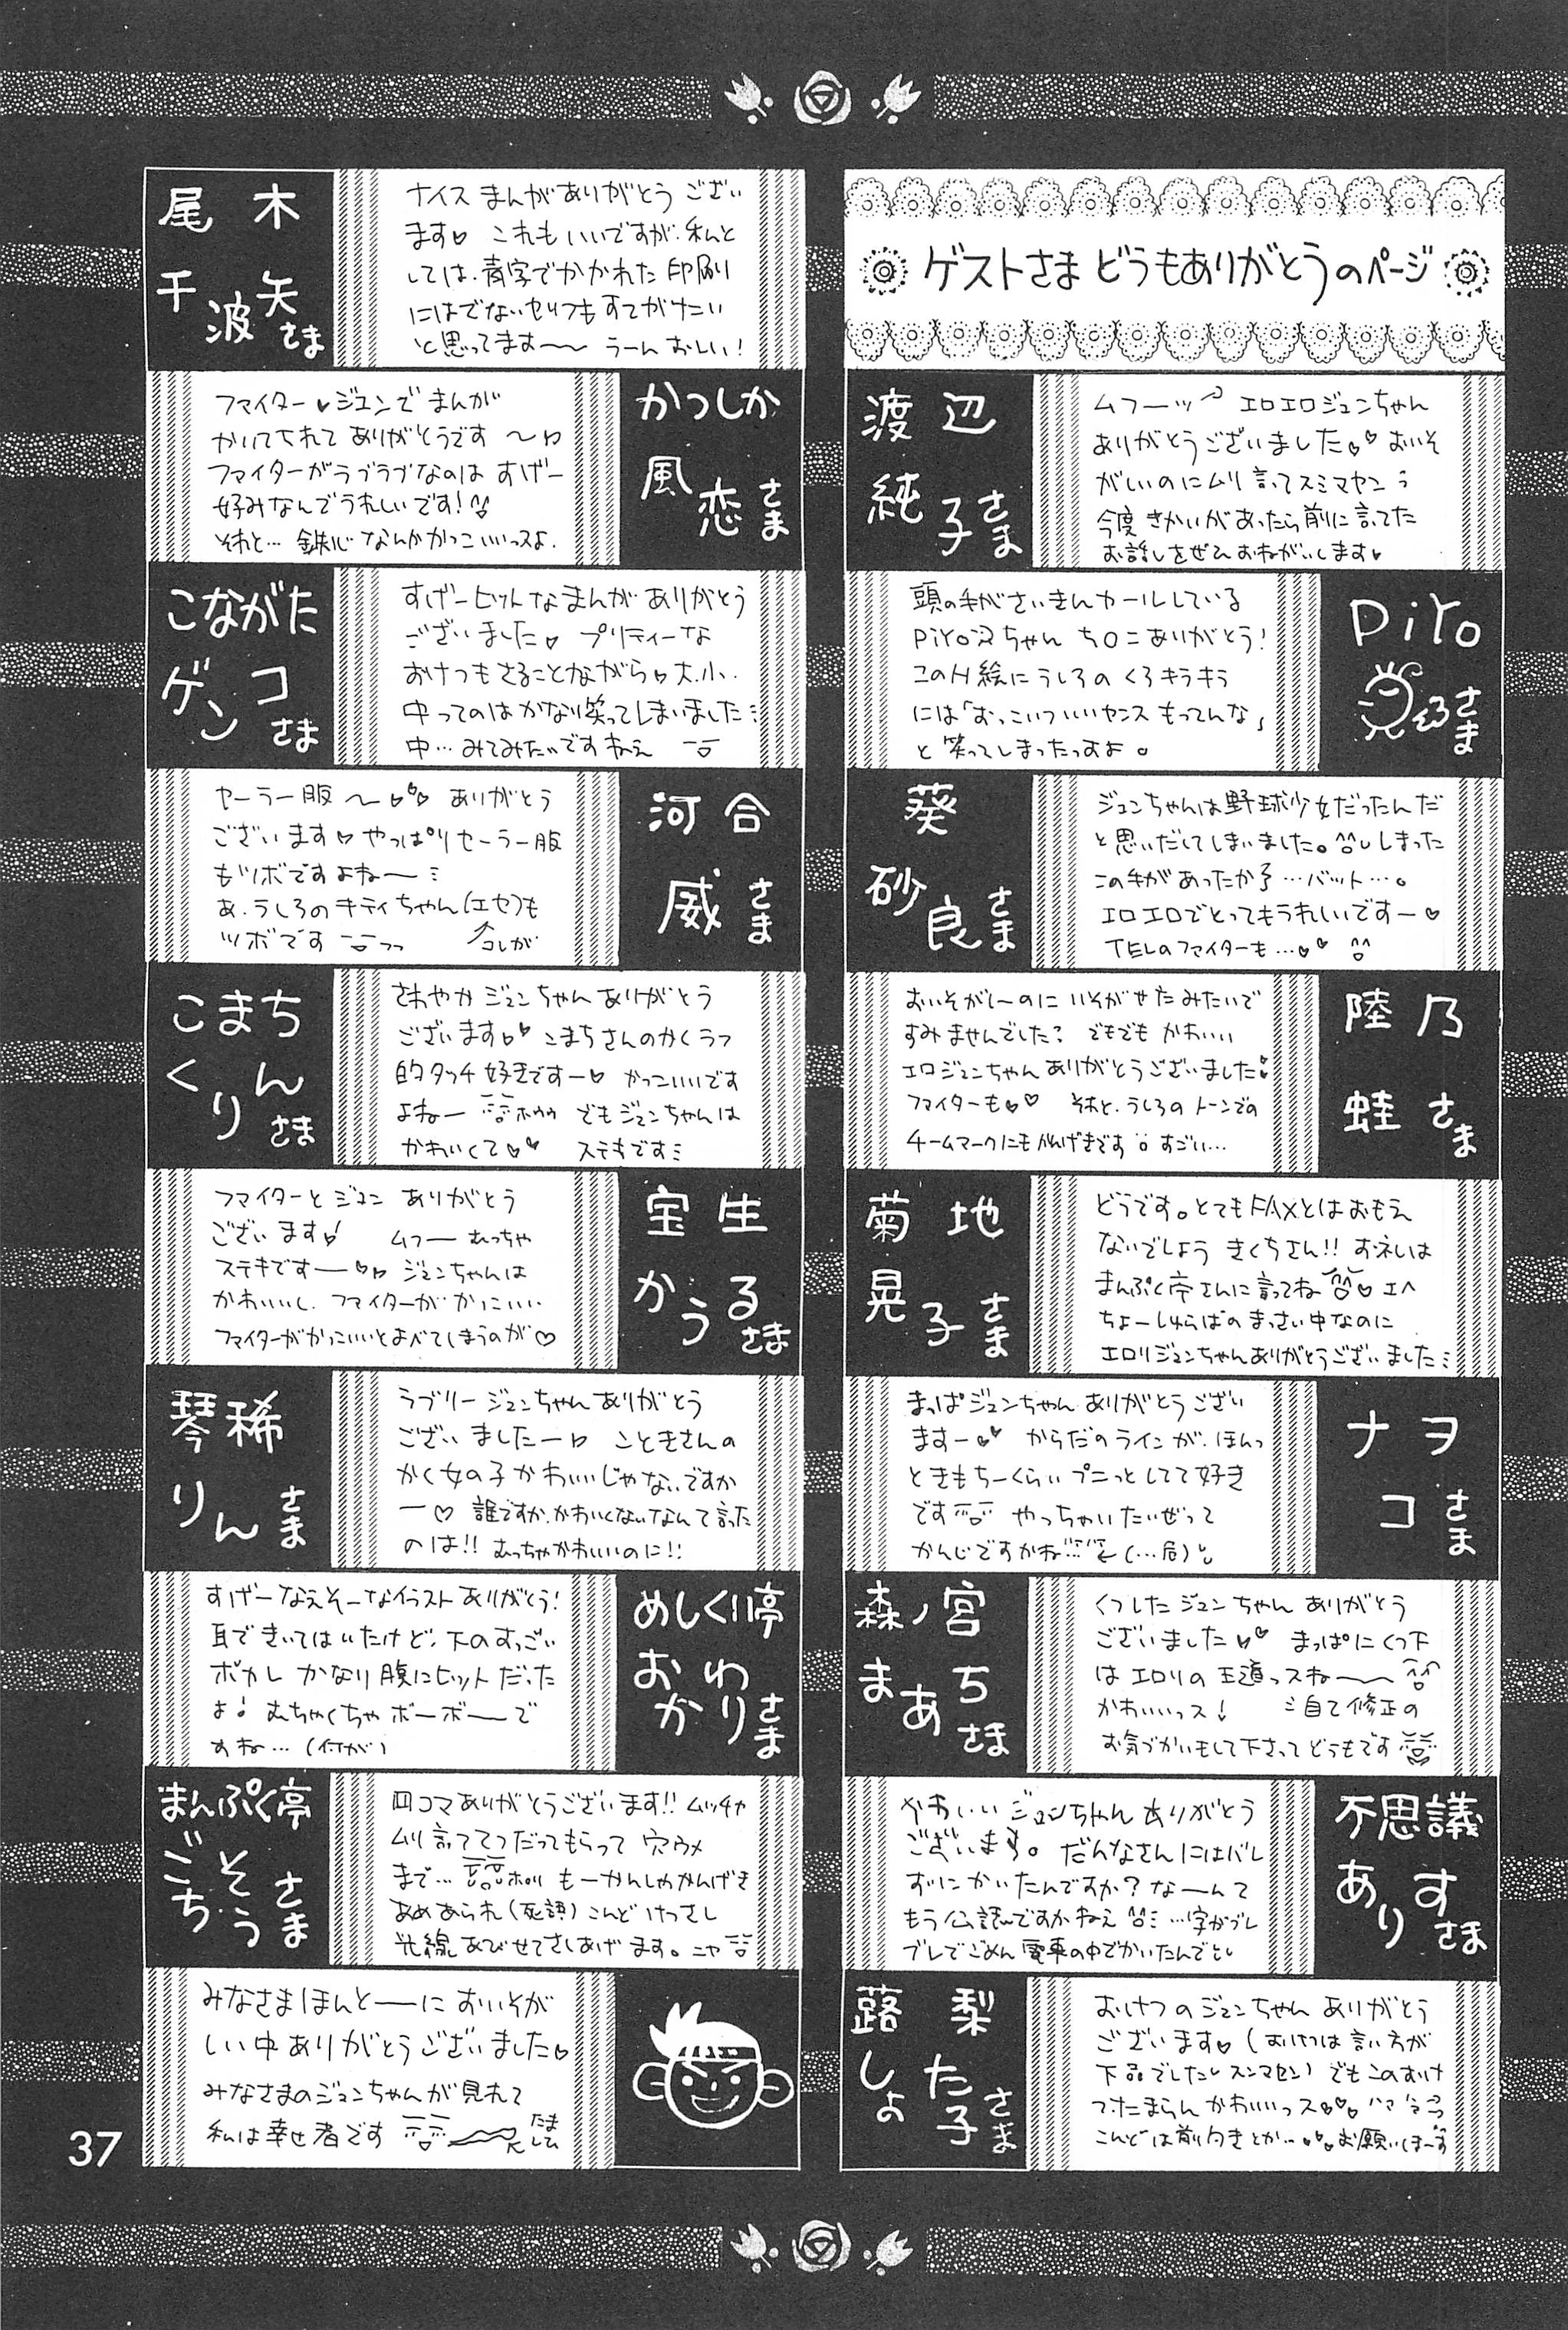 ゲストさま どうもありがとうのページ
渡辺
純子さま
ムフーッ エロエロジュンちゃん
ありがとうございました♡♡ おいそ
がしいのにムリ言ってスミマヤン
今度きかいがあったら前に言ってた
お話しをぜひおねがいします♥
PiYoさま
頭の毛がさいきんカールしている
PiYoちゃん ちロニありがとう!
このH絵にうしろのくろキラキラ
には「むっこいついいヤンスもってんな」
と笑ってしまったっすよ。
葵
砂良さま
ジュンちゃんは野球少女だったんだ
と思いだしてしまいました。しまった
この手があったか…バット…。
エロエロでとってもうれしいですー♡
TELのファイターも…♡♡
陸乃
蛙さま
おいそがしーのにいそがせたみたいで
すみませんでした でもでもかわいい
エロジュンちゃんありがとうございました
ファイターも♡♡ それと、うしろのトーンでの
チームマークにもかんげきです すごい…
菊地
晃子さま
どうです。とてもFAXとはおもえ
ないでしょう きくちさん!! お礼は
まんぷく亭さんに言ってね♡エヘ
ちょーしゅらばのまっさい中なのに
エロリジュンちゃんありがとうございました
ナヲ
コさま
まっぱジュンちゃんありがとうござい
ますー♡♡ からだのラインが、ほんっ
ときもちーくらいプニっとしてて好き
です やっちゃいたいぜって
かんじですかね (…局)
森ノ宮
まあちさま
くつしたジュンちゃんありがとう
ございました♡♡ まっぱにくつ下
はエロリの王道っスね〜
かわいいっス! 自て修正の
お気づかいもして下さってどうもです
不思議
ありすさま
かわいいジュンちゃんありがとう
ございます。だんなさんにはバレ
ずにかいたんですか?なーんて
もう公認ですかねえ …字がブレ
ブレでごめん電車の中でかいたんでと
蕗梨
しょた子さま
おけつのジュンちゃんありがとう
ございます♡(おけつは言い方が
下品でした スンマセン) でもこのおけ
つたまらんかわいいっス♡♡♡
こんどは前向きとか…♡♡お願いしまーす
尾木
千波矢さま
ナイスまんがありがとうござい
ます♡ これもいいですが、私と
しては、青字でかかれた印刷
にはでないセリフもすてがたい
と思ってます〜 うーんおしい!
かつしか
風恋さま
ファイター♥ジュンでまんが
かいてくれてありがとうです〜
ファイターがラブラブなのはすげー
好みなんでうれしいです!
それと… 鉄心なんかかっこいいっスよ.
こながた
ゲンコさま
すげーヒットなまんがありがとう
ございました♡ プリティーな
おけつもさることながら♡大.小.
中ってのはかなり笑ってしまいました
中…みてみたいですねえ
河合
威さま
セーラー服〜♡♡♡ ありがとう
ございます♡やっぱりセーラー服
もツボですよね〜
あ、うしろのキティちゃん(エセ)も
ツボです コレが
こまち
くりんさま
さわやかジュンちゃんありがとう
ございます♡♡こまちさんのかくラフ
的タッチ好きですー♡ かっこいいです
よねー ホウウ でもジュンちゃんは
かわいくて♡♡ ステキです
宝生
かうるさま
ファイターとジュンありがとう
ございます! ムフー むっちゃ
ステキですー♡♡ ジュンちゃんは
かわいいし、ファイターがかっこいい
ファイターがかっこいいとよべてしまうのが♡
琴稀
りんさま
ラブリージュンちゃんありがとう
ございましたー♡ こときさんの
かく女の子かわいいじゃないですか
ー♡ 誰ですか、かわいくないなんて言った
のは!! むっちゃかわいいのに!!
めしくい亭
おかわりさま
すげーなえそーなイラストありがとう!
耳できいてはいたけど、下のすっごい
ボカしかなり腹にヒットだった
よ! むちゃくちゃボーボーで
すね…(何が)
まんぷく亭
ごちそうさま
四コマありがとうございます!! ムッチャ
ムリ言っててつだってもらって穴ウメ
まで… ホロリ もーかんしゃかんげき
あめあられ(死語)こんどけっさし
光線あびせてさしあげます。ニヤ
みなさまほんとーにおいそが
しい中ありがとうございました♡
みなさまのジュンちゃんが見れて
私は幸せ者です
たましひ
37